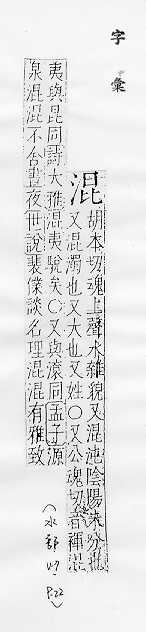 字彙
混 胡本切魂上聲水雜貌又混沌陰陽未分也
又混濁也又大也又姓〇又公魂切音裩混
夷與昆同詩大雅混夷駾矣〇又與滾同孟子源
泉混混不舍晝夜世說裴僕談名理混混有雅致
(水部 P.22)